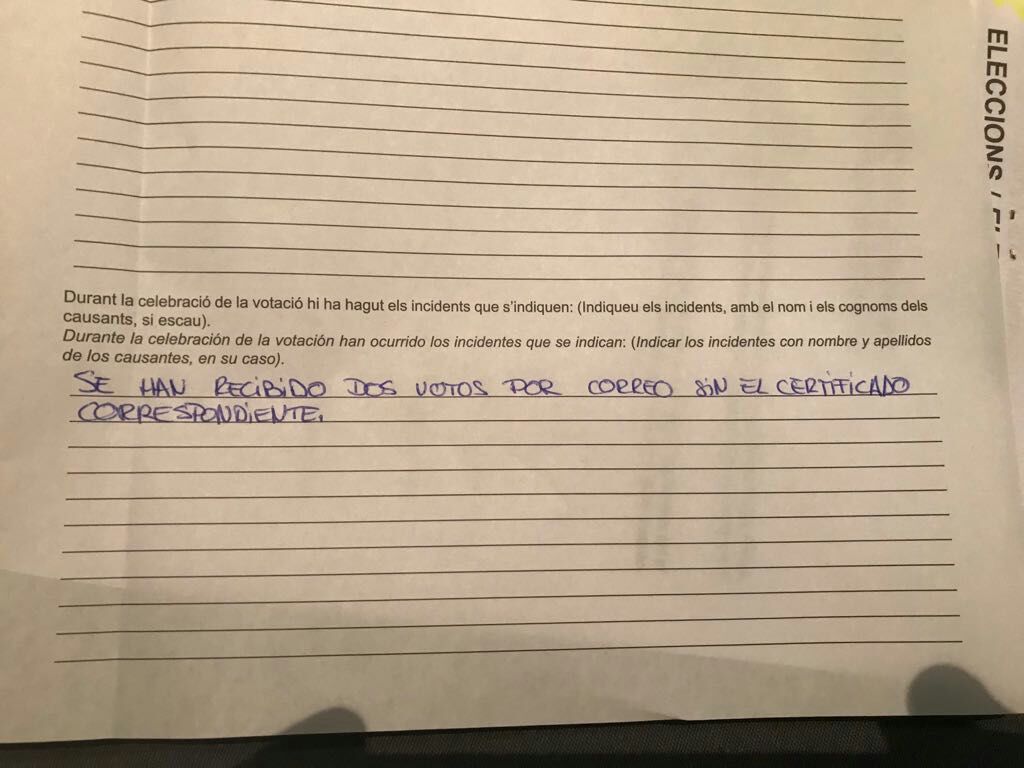 ELECCIONS
Durant la celebració de la votació hi ha hagut els incidents que s'indiquen: (Indiqueu els incidents, amb el nom i els cognoms dels
causants, si escau).
Durante la celebración de la votación han ocurrido los incidentes que se indican: (Indicar los incidentes con nombre y apellidos
de los causantes, en su caso).
SE HAN RECIBIDO DOS VOTOS POR CORREO SIN EL CERTIFICADO
CORRESPONDIENTE.